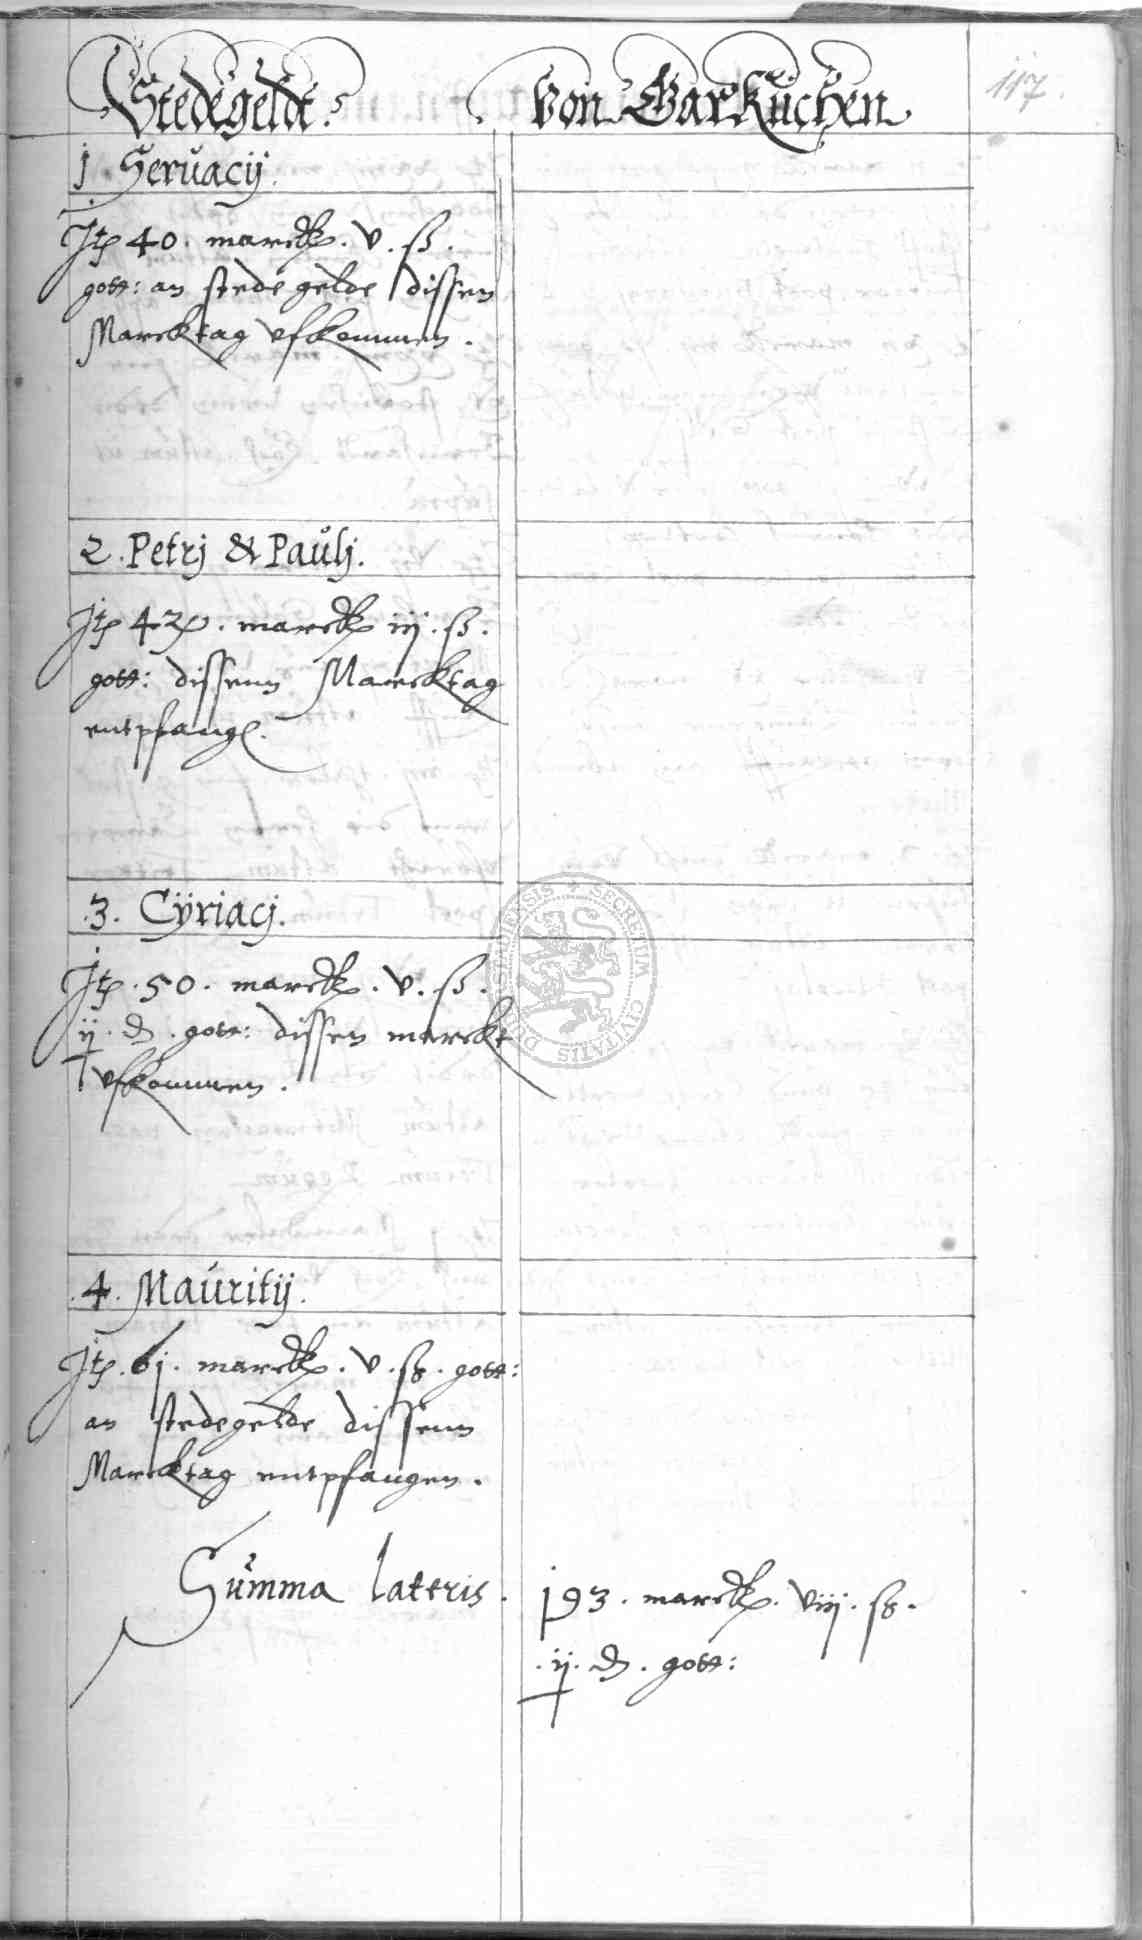 Stedegeldt. Von Garküchen.
117.
1 Seruacij.
Jtem 40. marck. v. ß.
gott: an stedegelde dissen
Marcktag vfkommen.
2. Petrj & Paulj.
Jtem 42. marck iij. ß.
gott: dissenn Marcktag
entpfangen.
.3. Cÿriacj.
Jtem .50. marck. v. ß.
ij. d. gott: dissen marckt
vfkommen.
.4. Mauritij.
Jtem .61. marck. v. ß. gott:
an stedegelde dissenn
Marcktag entpfangen.
Summa lateris. 193. marck. viij. ß.
.ij. d. gott:
SECRETUM CIVITATIS DUDERSTADIENSIS